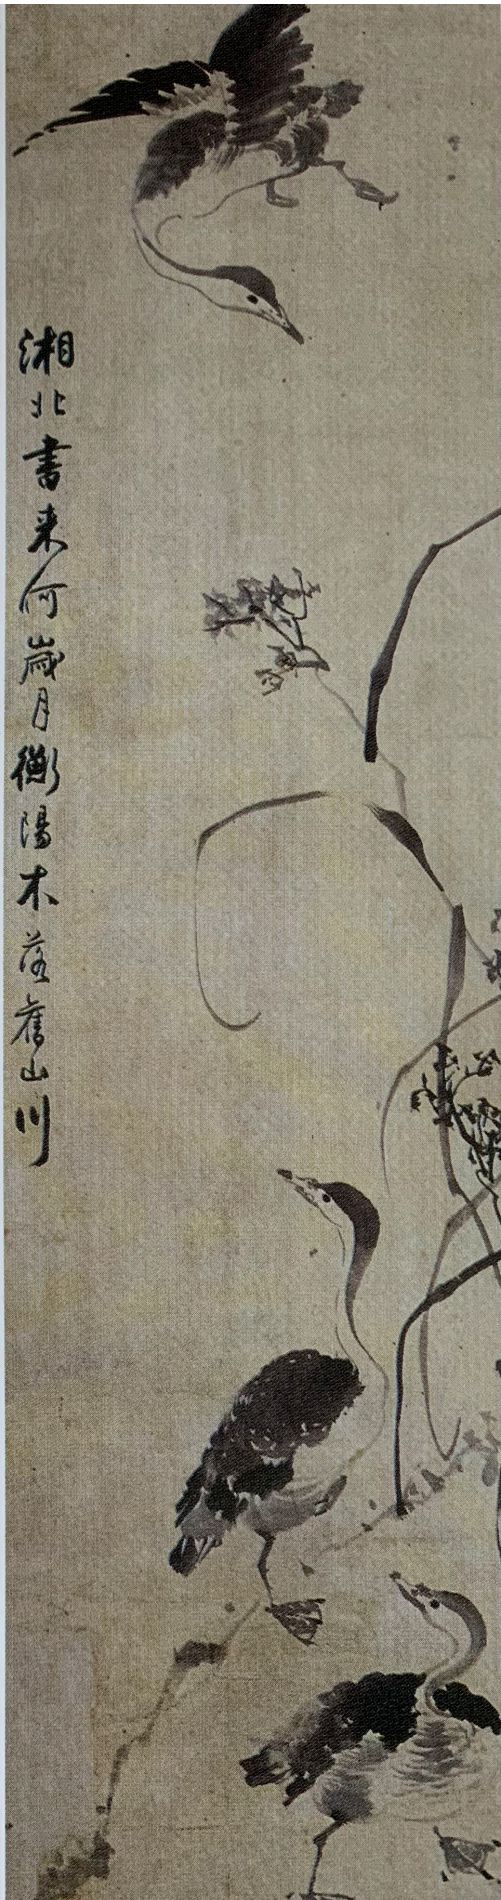 湘北書来何歲月衡陽木落舊山川